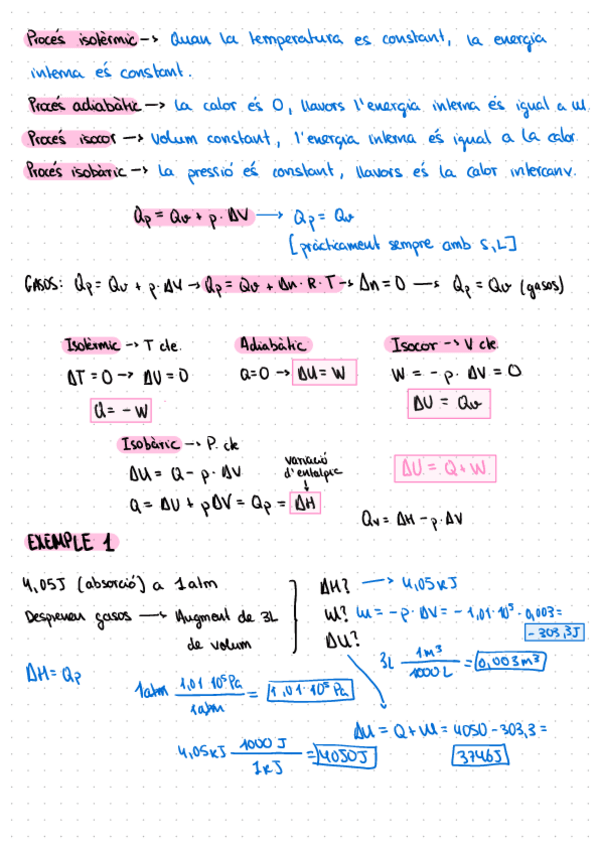 Procés isotèrmic → Quan la temperatura es constant, la energia
interna és constant.
Procés adiabàtic → La calor és 0, llavors l'energia interna és igual a W.
Procés isocor → Volum constant, l'energia interna és igual a la calor.
Procés isobàric → La pressió és constant, llavors és la calor intercanv.
Qp = Qv + p · ΔV → Qp = Qv
[pràcticament sempre amb S, L]
GASOS: Qp = Qv + p · ΔV → Qp = Qv + Δn · R · T → Δn = 0 → Qp = Qv (gasos)
Isotèrmic → T cte.
ΔT = 0 → ΔU = 0
Q = - W
Adiabàtic
Q = 0 → ΔU = W
Isocor → V cte.
W = - p · ΔV = 0
ΔU = Qv
Isobàric → P. cte
ΔU = Q - p · ΔV
Q = ΔU + pΔV = Qp = ΔH
variació
d'entalpia
ΔU = Q + W
Qv = ΔH - p · ΔV
EXEMPLE 1
4,05J (absorció) a 1 atm
Desprenen gasos → Augment de 3L
de volum
ΔH? → 4,05 kJ
W? W = - p · ΔV = - 1,01 · 10⁵ · 0,003 =
- 303,3J
ΔU?
3L 1m³ / 1000 L = 0,003 m³
ΔH = Qp
1atm 1,01 · 10⁵ Pa / 1atm = 1,01 · 10⁵ Pa
4,05 kJ 1000 J / 1 kJ = 4050J
ΔU = Q + W = 4050 - 303,3 =
3746J